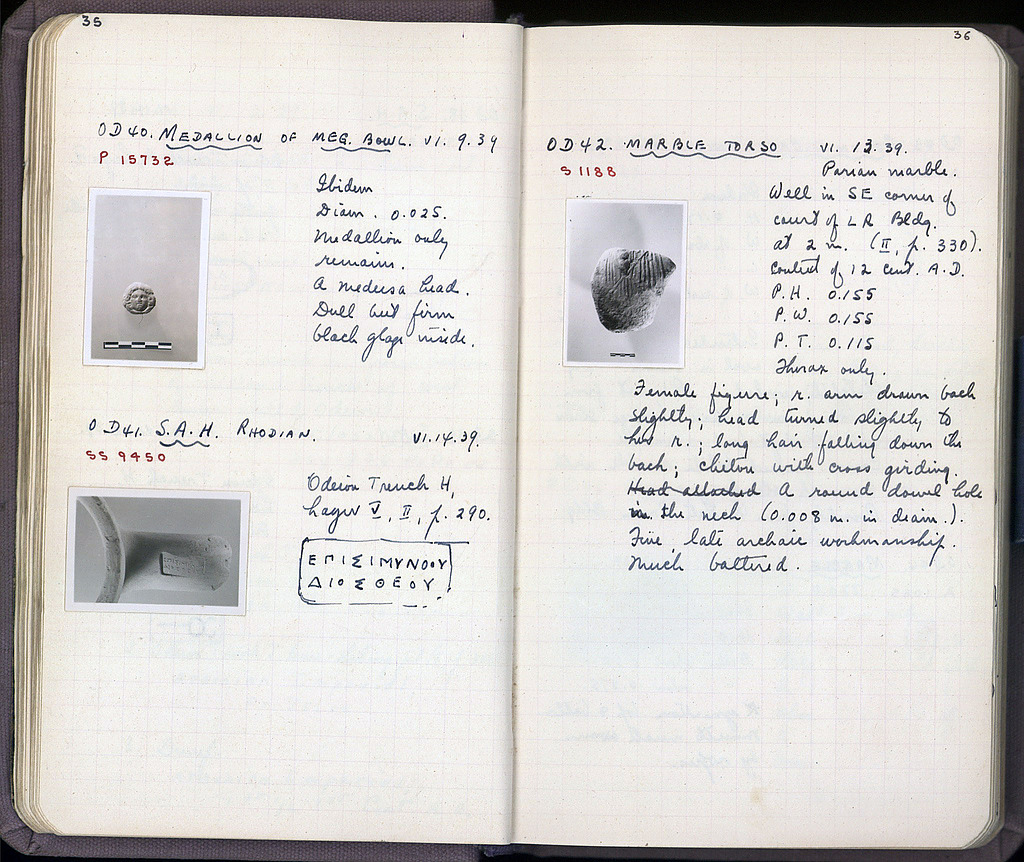 35
OD 40. MEDALLION OF MEG. BOWL. VI. 9. 39
P 15732
Ibidem
Diam. 0.025.
Medallion only
remains.
A medusa head.
Dull but firm
black glaze inside.
OD 41. S.A.H. RHODIAN. VI.14.39.
SS 9450
Odeion Trench H,
Layer V, II, p. 290.
ΕΠΙΣΙΜΥΝΟΟΥ
ΔΙΟΣΘΕΟΥ
36
OD 42. MARBLE TORSO VI. 13. 39.
S 1188
Parian marble.
Well in SE corner of
court of LR Bldg.
at 2 m. (II, p. 330).
Context of 12 cent. A.D.
P.H. 0.155
P.W. 0.155
P.T. 0.115
Thorax only.
Female figure; r. arm drawn back
slightly; head turned slightly to
her r.; long hair falling down the
back; chiton with cross girding.
Head attached A round dowel hole
in the neck (0.008 m. in diam.).
Fine, late archaic workmanship.
Much battered.